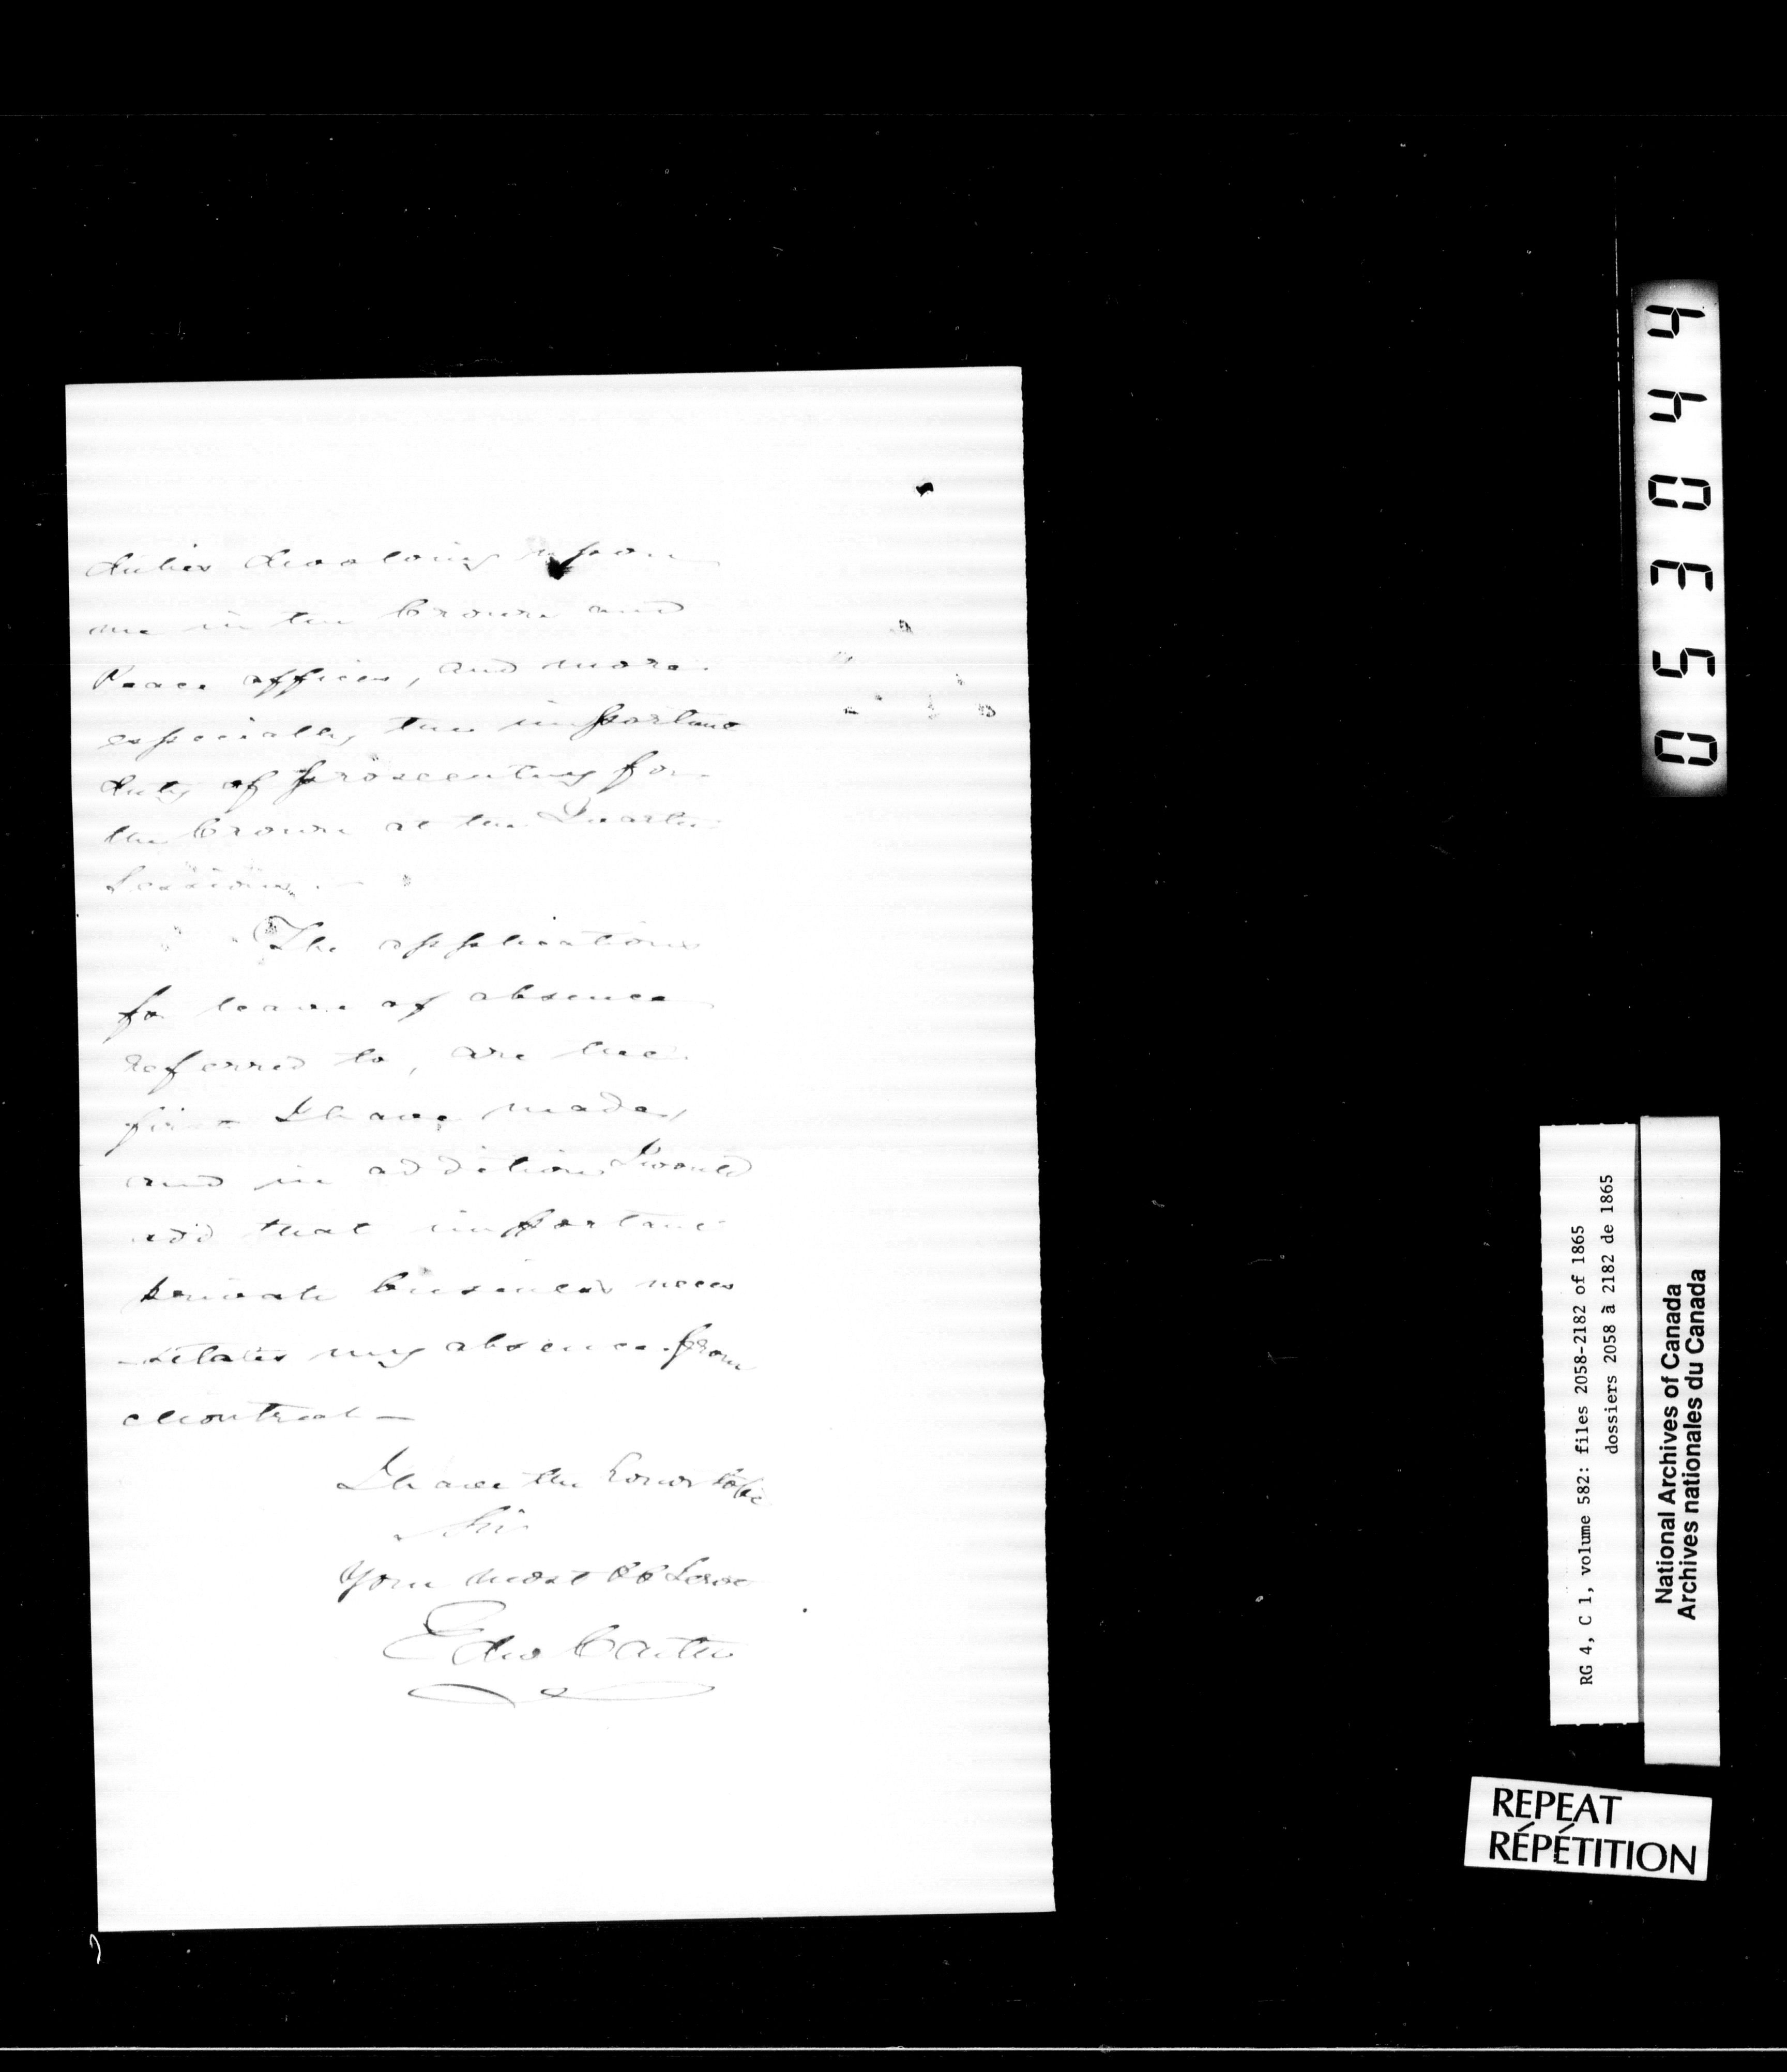 duties devolving upon
me in the Crown and
Peace offices, and more
especially the important
duty of prosecuting for
the Crown at the Quarter
Sessions. —
The applications
for leave of absence
referred to, are the
first I have made,
and in addition I would
add that important
private business neces
-sitates my absence from
Montreal —
I have the honor to be
Sir
Your most Ob Servt
Edw Carter
053044
RG 4, C 1, volume 582: files 2058-2182 of 1865
dossiers 2058 à 2182 de 1865
National Archives of Canada
Archives nationales du Canada
REPEAT
RÉPÉTITION